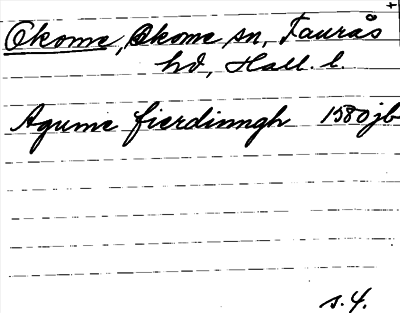 Okome, Okome sn, Faurås
hd, Hall. l.
Agume fierdinngh 1580 jb
s. 4.